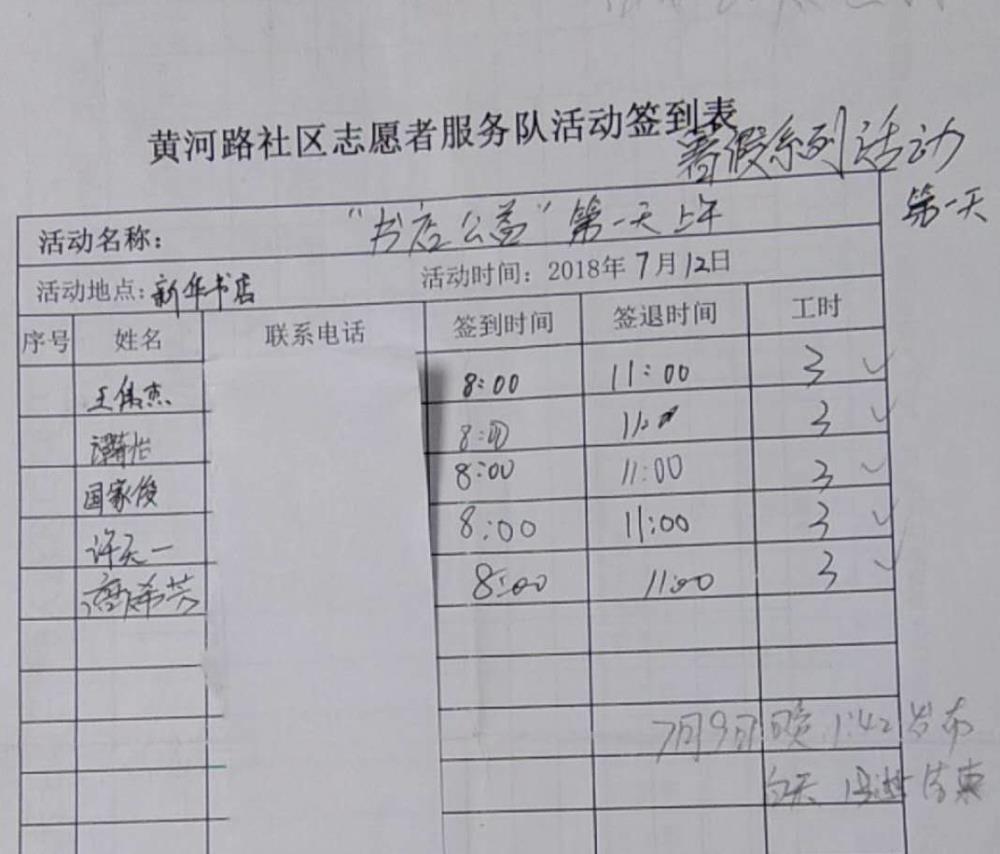 黄河路社区志愿者服务队活动签到表
暑假系列活动
第一天
活动名称： “书店公益”第一天上午
活动地点：新华书店 活动时间：2018年7月12日
序号 姓名 联系电话 签到时间 签退时间 工时
王伟杰 8:00 11:00 3 ✓
谭琦怡 8:00 11:00 3 ✓
国家俊 8:00 11:00 3 ✓
许天一 8:00 11:00 3 ✓
希芳 8:00 11:00 3 ✓
7月9日晚 1:42 发布
白天 结束